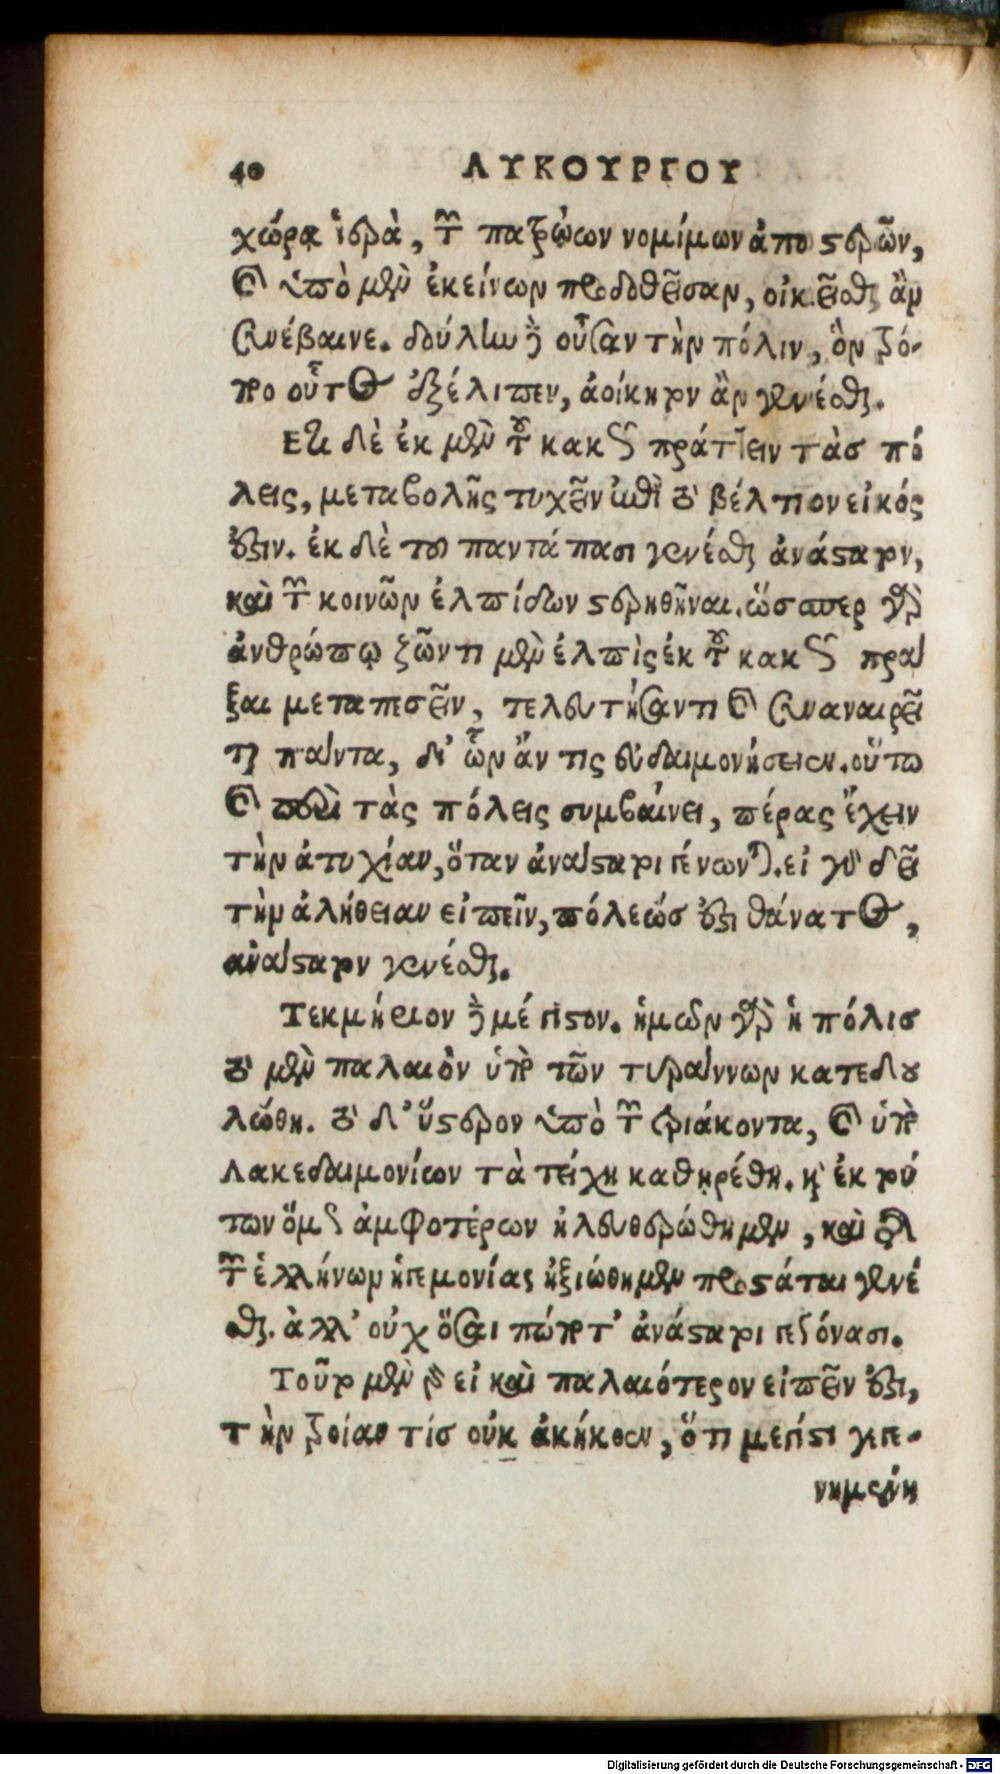 40 ΛΥΚΟΥΡΓΟΥ
χώρα ἱερὰ, τῶν πατρῴων νομίμων ἀποστερῶν,
καὶ ὑπὸ μὲν ἐκείνων προδοθεῖσαν, οἰκεῖσθαι ἂν
συνέβαινε. δούλην δὲ οὖσαν τὴν πόλιν, ὃν τρό-
πον οὗτος ἐξέλιπεν, ἀοίκητον ἂν γενέσθαι.
Ετι δὲ ἐκ μὲν τοῦ κακῶς πράττειν τὰσ πό
λεις, μεταβολῆς τυχεῖν ἐπὶ τὸ βέλτιον εἰκός
ἐστιν. ἐκ δὲ του παντάπασι γενέσθαι ἀνάστατον,
καὶ τῶν κοινῶν ἐλπίδων στερηθῆναι. ὥσπερ γὰρ
ἀνθρώπῳ ζῶντι μὲν ἐλπὶς ἐκ τοῦ κακῶς πρᾶ
ξαι μεταπεσεῖν, τελευτήσαντι καὶ συναναιρεῖ
ται πάντα, δι' ὧν ἄν τις εὐδαιμονήσειεν. οὕτω
καὶ περὶ τὰς πόλεις συμβαίνει, πέρας ἔχειν
τὴν ἀτυχίαν, ὅταν ἀνάστατοι γένωνται. εἰ γὰρ δεῖ
τὴν ἀλήθειαν εἰπεῖν, πόλεώσ ἐστι θάνατος,
ἀνάστατον γενέσθαι.
Τεκμήριον δὲ μέγιστον. ἡμῶν γὰρ ἡ πόλισ
τὸ μὲν παλαιὸν ὑπὸ τῶν τυράννων κατεδου
λώθη. τὸ δ' ὕστερον ὑπὸ τῶν τριάκοντα, καὶ ὑπὸ
Λακεδαιμονίων τὰ τείχη καθῃρέθη. καὶ ἐκ τού
των ὅμως ἀμφοτέρων ἠλευθερώθημεν, καὶ
τῶν ἑλλήνων ἡγεμονίας ἠξιώθημεν προστάται γενέ
σθαι. ἀλλ' οὐχ ὅσαι πώποτ' ἀνάστατοι γεγόνασι.
Τοῦτο μὲν γὰρ εἰ καὶ παλαιότερον εἰπεῖν ἐστι,
τὴν τροίαν τίσ οὐκ ἀκήκοεν, ὅτι μεγίστη γεγε-
νημένη
Digitalisierung gefördert durch die Deutsche Forschungsgemeinschaft - DFG